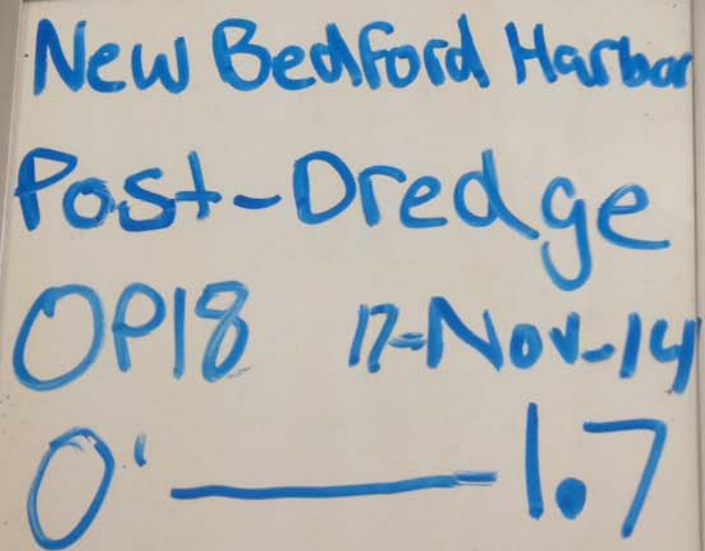 New Bedford Harbor
Post-Dredge
OP18 17-Nov-14
0' — 1.7